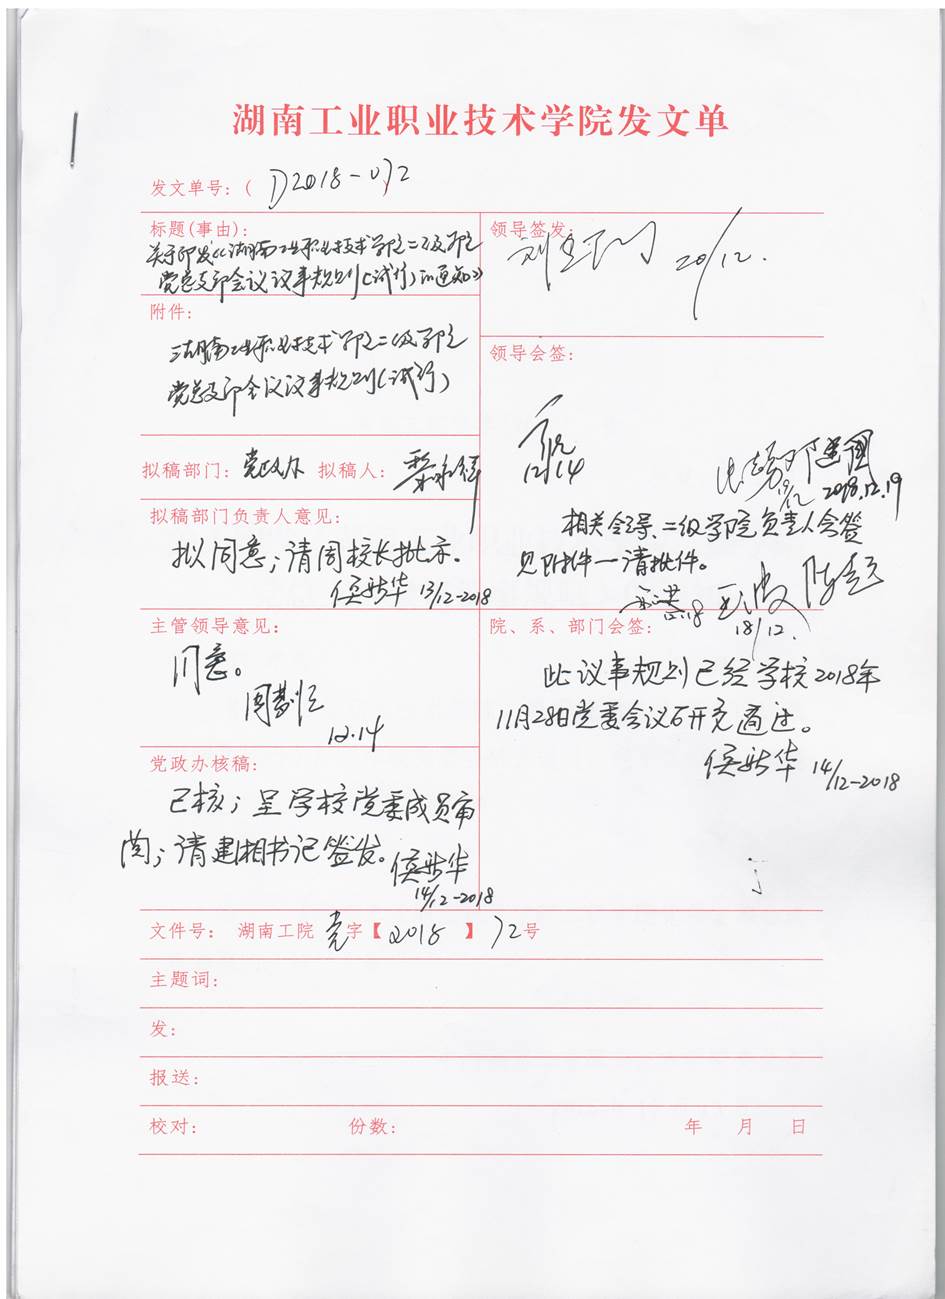 湖南工业职业技术学院发文单
发文单号：( D2018-072
标题(事由)：
关于印发《湖南工业职业技术学院二级学院
党总支部会议议事规则(试行)的通知》
附件：
湖南工业职业技术学院二级学院
党总支部会议议事规则(试行)
拟稿部门：党政办 拟稿人：
拟稿部门负责人意见：
拟同意；请周校长批示。
侯新华 13/12-2018
主管领导意见：
同意。
12.14
党政办核稿：
已核；呈学校党委成员审
阅；请建湘书记签发。
侯新华
14/12-2018
领导签发：
20/12.
领导会签：
12/14
19/12 2018.12.19
相关领导、二级学院负责人会签
见附件一请批件。
12.18
18/12.
院、系、部门会签：
此议事规则已经学校2018年
11月28日党委会议研究通过。
侯新华 14/12-2018
文件号： 湖南工院 党字【2018】72号
主题词：
发：
报送：
校对： 份数： 年 月 日